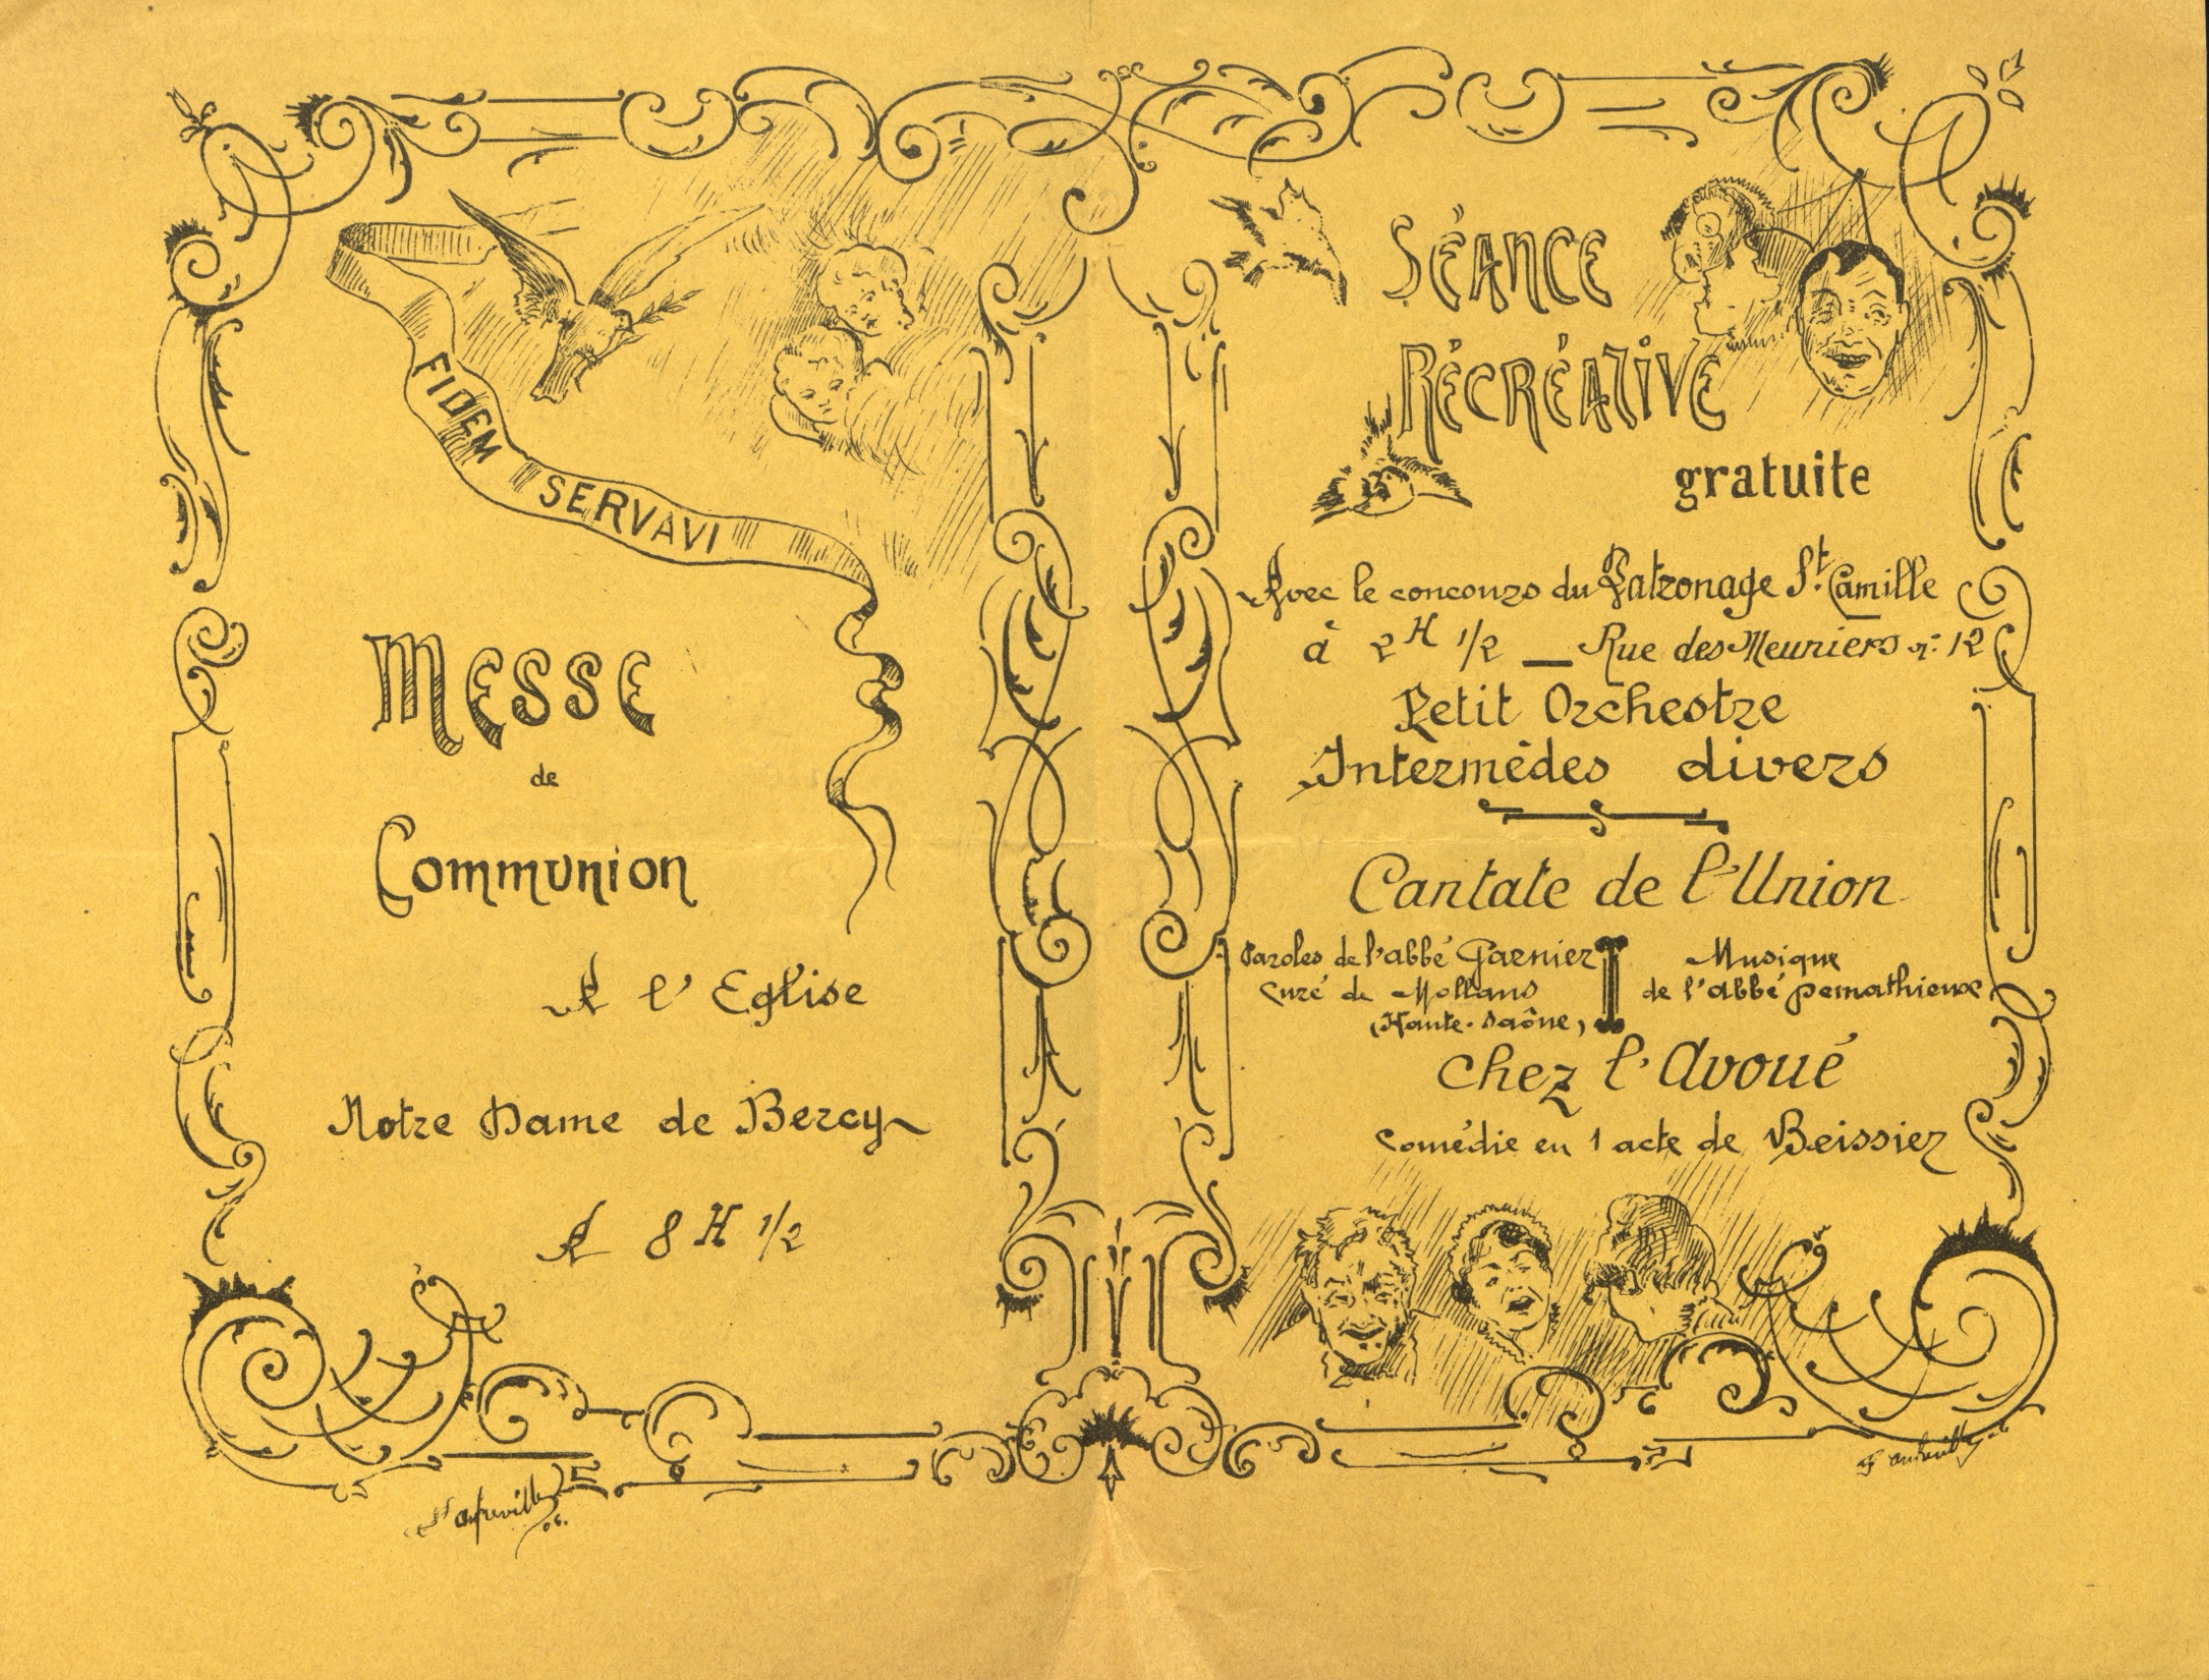 FIDEM SERVAVI
MESSE
de
Communion
A l'Eglise
Notre Dame de Bercy
A 8 H 1/2
SÉANCE
RÉCRÉATIVE
gratuite
Avec le concours du Patronage St. Camille
à 2 H 1/2 — Rue des Meuniers n: 12
Petit Orchestre
Intermèdes divers
Cantate de l'Union
Paroles de l'abbé Garnier
curé de Mollans
(Haute-Saône)
Musique
de l'abbé Pemathieux
Chez l'Avoué
Comédie en 1 acte de Beissier
06.